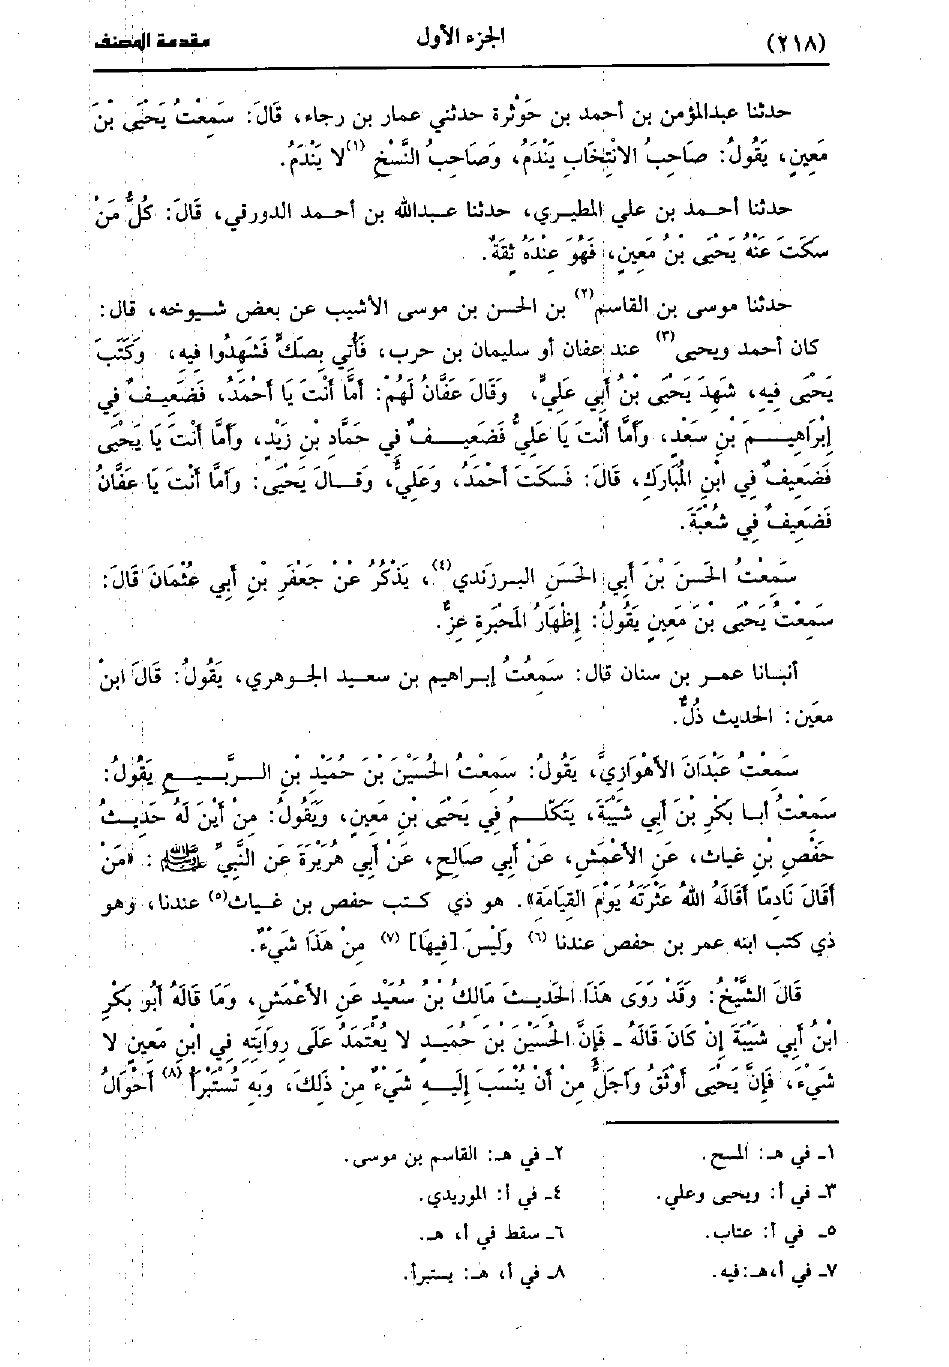 (٢١٨) الجزء الأول مقدمة المصنف
حدثنا عبدالمؤمن بن أحمد بن حَوْثرة حدثني عمار بن رجاء، قَالَ: سَمِعْتُ يَحْيَى بْنَ
مَعِينٍ، يَقُولُ: صَاحِبُ الانْتِخَابِ يَنْدَمُ، وَصَاحِبُ النَّسْخِ (١) لا يَنْدَمُ.
حدثنا أحمد بن علي المطيري، حدثنا عبدالله بن أحمد الدورقي، قَالَ: كُلُّ مَنْ
سَكَتَ عَنْهُ يَحْيَى بْنُ مَعِينٍ، فَهُوَ عِنْدَهُ ثِقَةٌ.
حدثنا موسى بن القاسم (٢) بن الحسن بن موسى الأشيب عن بعض شيوخه، قال:
كان أحمد ويحيى (٣) عند عفان أو سليمان بن حرب، فَأُتِي بِصَكٍّ فَشَهِدُوا فِيهِ، وَكَتَبَ
يَحْيَى فِيهِ، شَهِدَ يَحْيَى بْنُ أَبِي عَلِيٍّ، وَقَالَ عَفَّانُ لَهُمْ: أَمَّا أَنْتَ يَا أَحْمَدُ، فَضَعِيفٌ فِي
إِبْرَاهِيمَ بْنِ سَعْدٍ، وأَمَّا أَنْتَ يَا عَلِيُّ فَضَعِيفٌ فِي حَمَّادِ بْنِ زَيْدٍ، وَأَمَّا أَنْتَ يَا يَحْيَى
فَضَعِيفٌ فِي ابْنِ الْمُبَارَكِ، قَالَ: فَسَكَتَ أَحْمَدُ، وَعَلِيٌّ، وَقَالَ يَحْيَى: وَأَمَّا أَنْتَ يَا عَفَّانُ
فَضَعِيفٌ فِي شُعْبَةَ.
سَمِعْتُ الحَسَنَ بْنَ أَبِي الحَسَنِ البرزندي (٤)، يَذْكُرُ عَنْ جَعْفَرِ بْنِ أَبِي عُثْمَانَ قَالَ:
سَمِعْتُ يَحْيَى بْنَ مَعِينٍ يَقُولُ: إِظْهَارُ الْمَحْبَرَةِ عِزٌّ.
أنبانا عمر بن سنان قال: سَمِعْتُ إبراهيم بن سعيد الجوهري، يَقُولُ: قَالَ ابنُ
معَين: الحديث ذُلٌّ.
سَمِعْتُ عَبْدَانَ الأَهْوَازِيَّ، يَقُولُ: سَمِعْتُ الحُسَيْنَ بْنَ حُمَيْدِ بْنِ الرَّبِيعِ يَقُولُ:
سَمِعْتُ أبا بَكْرِ بْنَ أَبِي شَيْبَةَ، يَتَكَلَّمُ فِي يَحْيَى بْنِ مَعِينٍ، وَيَقُولُ: مِنْ أَيْنَ لَهُ حَدِيثُ
حَفْصِ بْنِ غياث، عَنِ الأَعْمَشِ، عَنْ أَبِي صَالِحٍ، عَنْ أَبِي هُرَيْرَةَ عَنِ النَّبِيِّ ﷺ: «مَنْ
أَقَالَ نَادِمًا أَقَالَهُ اللهُ عَثْرَتَهُ يَوْمَ القِيَامَةِ». هو ذي كتب حفص بن غياث (٥) عندنا، وهو
ذي كتب ابنه عمر بن حفص عندنا (٦) وَلَيْسَ [فِيهَا] (٧) مِنْ هَذَا شَيْءٌ.
قَالَ الشَّيْخُ: وَقَدْ رَوَى هَذَا الحَدِيثَ مَالكُ بْنُ سُعَيْدٍ عَنِ الأَعْمَشِ، وَمَا قَالَهُ أَبُو بَكْرِ
ابْنُ أَبِي شَيْبَةَ إِنْ كَانَ قَالَهُ ـ فَإِنَّ الحُسَيْنَ بْنَ حُمَيدٍ لا يُعْتَمَدُ عَلَى رِوَايَتِهِ فِي ابْنِ مَعِينٍ لا
شَيْءَ، فَإِنَّ يَحْيَى أَوْثَقُ وَأَجَلُّ مِنْ أَنْ يُنْسَبَ إِلَيهِ شَيْءٌ مِنْ ذَلِكَ، وَبِهِ تُسْتَبْرَأُ (٨) أَحْوَالُ
١ـ في هـ: المسح. ٢ـ في هـ: القاسم بن موسى.
٣ـ في أ: ويحيى وعلي. ٤ـ في أ: الموريدي.
٥ـ في أ: عتاب. ٦ـ سقط في أ، هـ.
٧ـ في أ،هـ:فيه. ٨ـ في أ، هـ: يستبرأ.